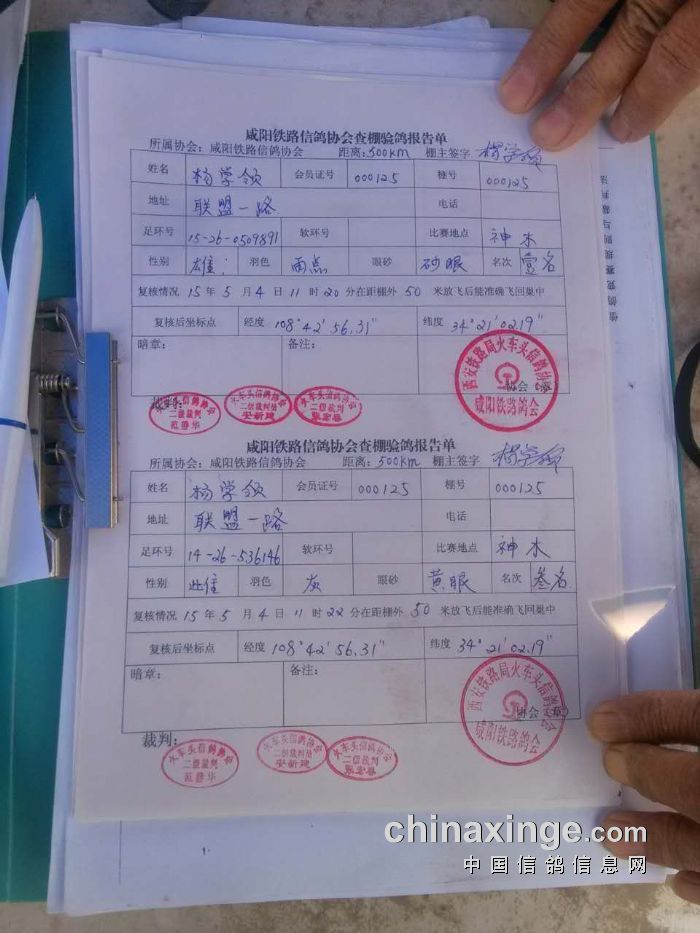 咸阳铁路信鸽协会查棚验鸽报告单
所属协会：咸阳铁路信鸽协会 距离：500km 棚主签字 杨学领
姓名 杨学领 会员证号 000125 棚号 000125
地址 联盟一路 电话
足环号 15-26-0509891 软环号 比赛地点 神木
性别 雄 羽色 雨点 眼砂 砂眼 名次 壹名
复核情况 15年5月4日11时20分在距棚外50米放飞后能准确飞回巢中
复核后坐标点 经度 108°42'56.31" 纬度 34°21'02.19"
暗章： 备注：
西安铁路局火车头信鸽协会
咸阳铁路鸽会
协会（章）
裁判：
火车头信鸽协会 二级裁判 范善华
火车头信鸽协会 二级裁判 安新建
火车头信鸽协会 二级裁判 张宏春
咸阳铁路信鸽协会查棚验鸽报告单
所属协会：咸阳铁路信鸽协会 距离：500km 棚主签字 杨学领
姓名 杨学领 会员证号 000125 棚号 000125
地址 联盟一路 电话
足环号 14-26-536146 软环号 比赛地点 神木
性别 雌 羽色 灰 眼砂 黄眼 名次 叁名
复核情况 15年5月4日11时22分在距棚外50米放飞后能准确飞回巢中
复核后坐标点 经度 108°42'56.31" 纬度 34°21'02.19"
暗章： 备注：
西安铁路局火车头信鸽协会
咸阳铁路鸽会
协会（章）
裁判：
火车头信鸽协会 二级裁判 范善华
火车头信鸽协会 二级裁判 安新建
火车头信鸽协会 二级裁判 张宏春
信鸽竞赛规则与裁判法
chinaxinge.com
中国信鸽信息网